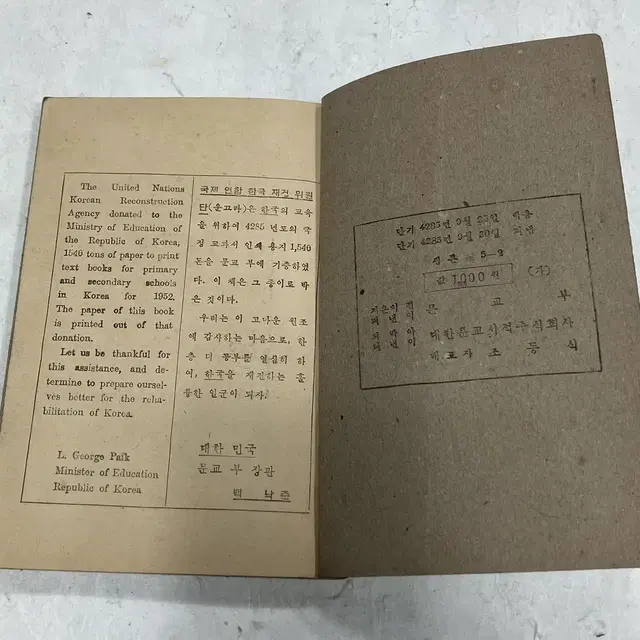 The United Nations
Korean Reconstruction
Agency donated to the
Ministry of Education of
the Republic of Korea,
1540 tons of paper to print
text books for primary
and secondary schools
in Korea for 1952.
The paper of this book
is printed out of that
donation.
Let us be thankful for
this assistance, and de-
termine to prepare oursel-
ves better for the reha-
bilitation of Korea.
L. George Paik
Minister of Education
Republic of Korea
국제 연합 한국 재건 위원
단(운끄라)은 한국의 교육
을 위하여 4285 년도의 국
정 교과서 인쇄 용지 1,540
톤을 문교 부에 기증하였
다. 이 책은 그 종이로 박
은 것이다.
우리는 이 고마운 원조
에 감사하는 마음으로, 한
층 더 공부를 열심히 하
여, 한국을 재건하는 훌
륭한 일군이 되자.
대한 민국
문교 부 장관
백 낙 준
단기 4285년 9월 25일 박음
단기 4285년 9월 30일 펴냄
5-2
값 1000 원
지은이 겸
펴낸이 문 교 부
박아
펴낸이 대한문교서적주식회사
대표자 조 동 식